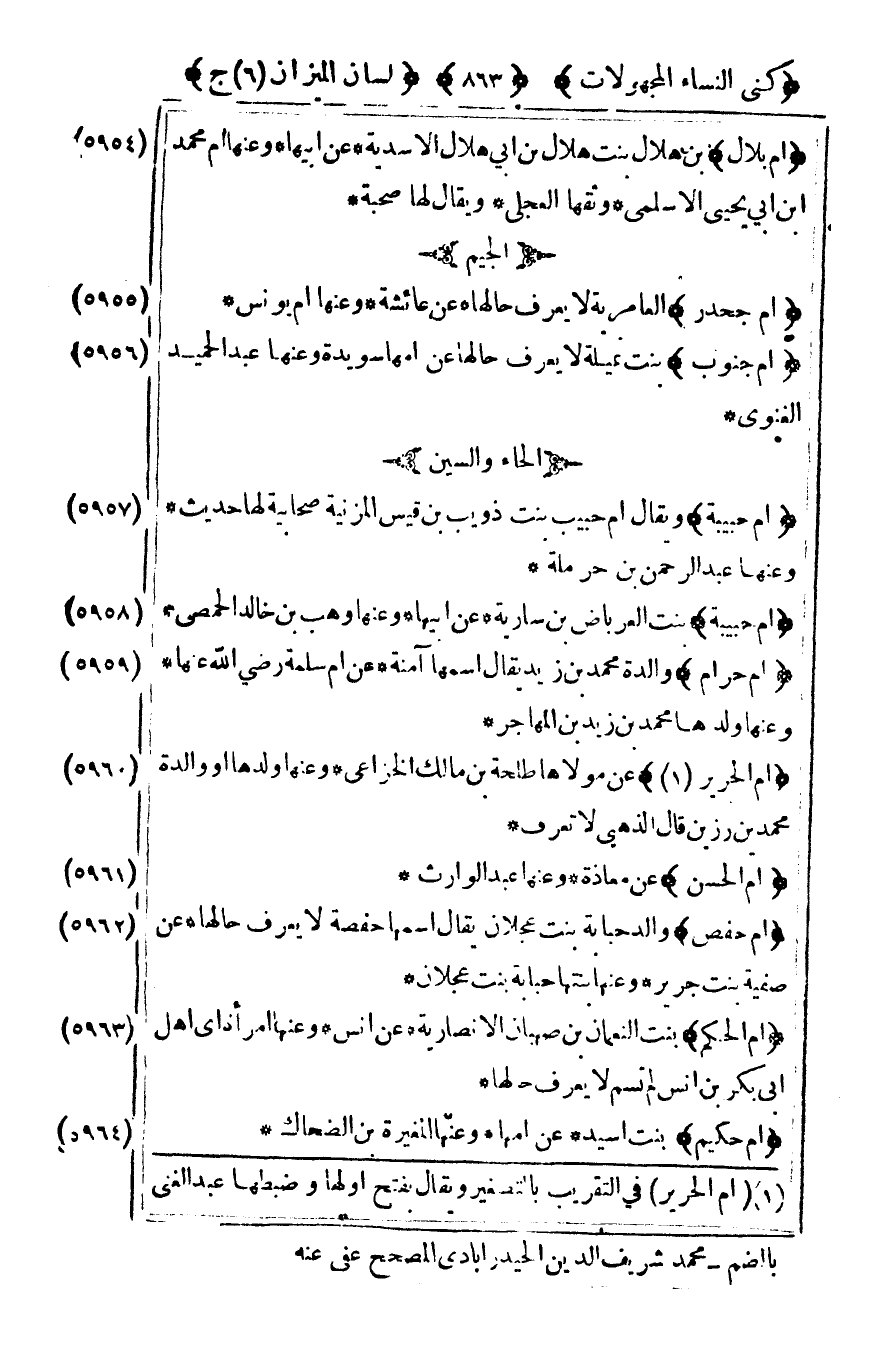 ﴿ كنى النساء المجهولات ﴾ ﴿ ٨٦٣ ﴾ ﴿ لسان الميزان (٦) ج ﴾
﴿ ام بلال ﴾ بن هلال بنت هلال بن ابي هلال الاسدية * عن ابيها * وعنها ام محمد (٥٩٥٤)
ابن ابي يحيى الاسلمى * وثقها العجلى * ويقال لها صحبة *
الجيم
﴿ ام جحدر ﴾ العامرية لا يعرف حالها * عن عائشة * وعنها ام يونس * (٥٩٥٥)
﴿ ام جنوب ﴾ بنت نميلة لا يعرف حالها عن امها سويدة وعنها عبد الحميد (٥٩٥٦)
الغنوى *
الحاء والسين
﴿ ام حبيبة ﴾ ويقال ام حبيب بنت ذويب بن قيس المزنية صحابية لها حديث * (٥٩٥٧)
وعنها عبد الرحمن بن حرملة *
﴿ ام حبيبة ﴾ بنت العرباض بن سارية * عن ابيها * وعنها وهب بن خالد الحمصى * (٥٩٥٨)
﴿ ام حرام ﴾ والدة محمد بن زيد يقال اسمها آمنة * عن ام سلمة رضي الله عنها * (٥٩٥٩)
وعنها ولدها محمد بن زيد بن المهاجر *
﴿ ام الحرير (١) ﴾ عن مولاها طلحة بن مالك الخزاعى * وعنها ولدها او والدة (٥٩٦٠)
محمد بن رزين قال الذهبي لا تعرف *
﴿ ام الحسن ﴾ عن معاذة * وعنها عبد الوارث * (٥٩٦١)
﴿ ام حفص ﴾ والد حبابة بنت عجلان يقال اسمها حفصة لا يعرف حالها * عن (٥٩٦٢)
صفية بنت جرير * وعنها بنتها حبابة بنت عجلان *
﴿ ام الحكم ﴾ بنت النعمان بن صهبان الانصارية * عن انس * وعنها امرأة اى اهل (٥٩٦٣)
ابى بكر بن انس لم تسم لا يعرف حالها *
﴿ ام حكيم ﴾ بنت اسيد * عن امها * وعنها المغيرة بن الضحاك * (٥٩٦٤)
(١) (ام الحرير) في التقريب بالتصغير ويقال بفتح اولها و ضبطها عبد الغنى
بالضم ــ محمد شريف الدين الحيدرابادى المصحح عفى عنه